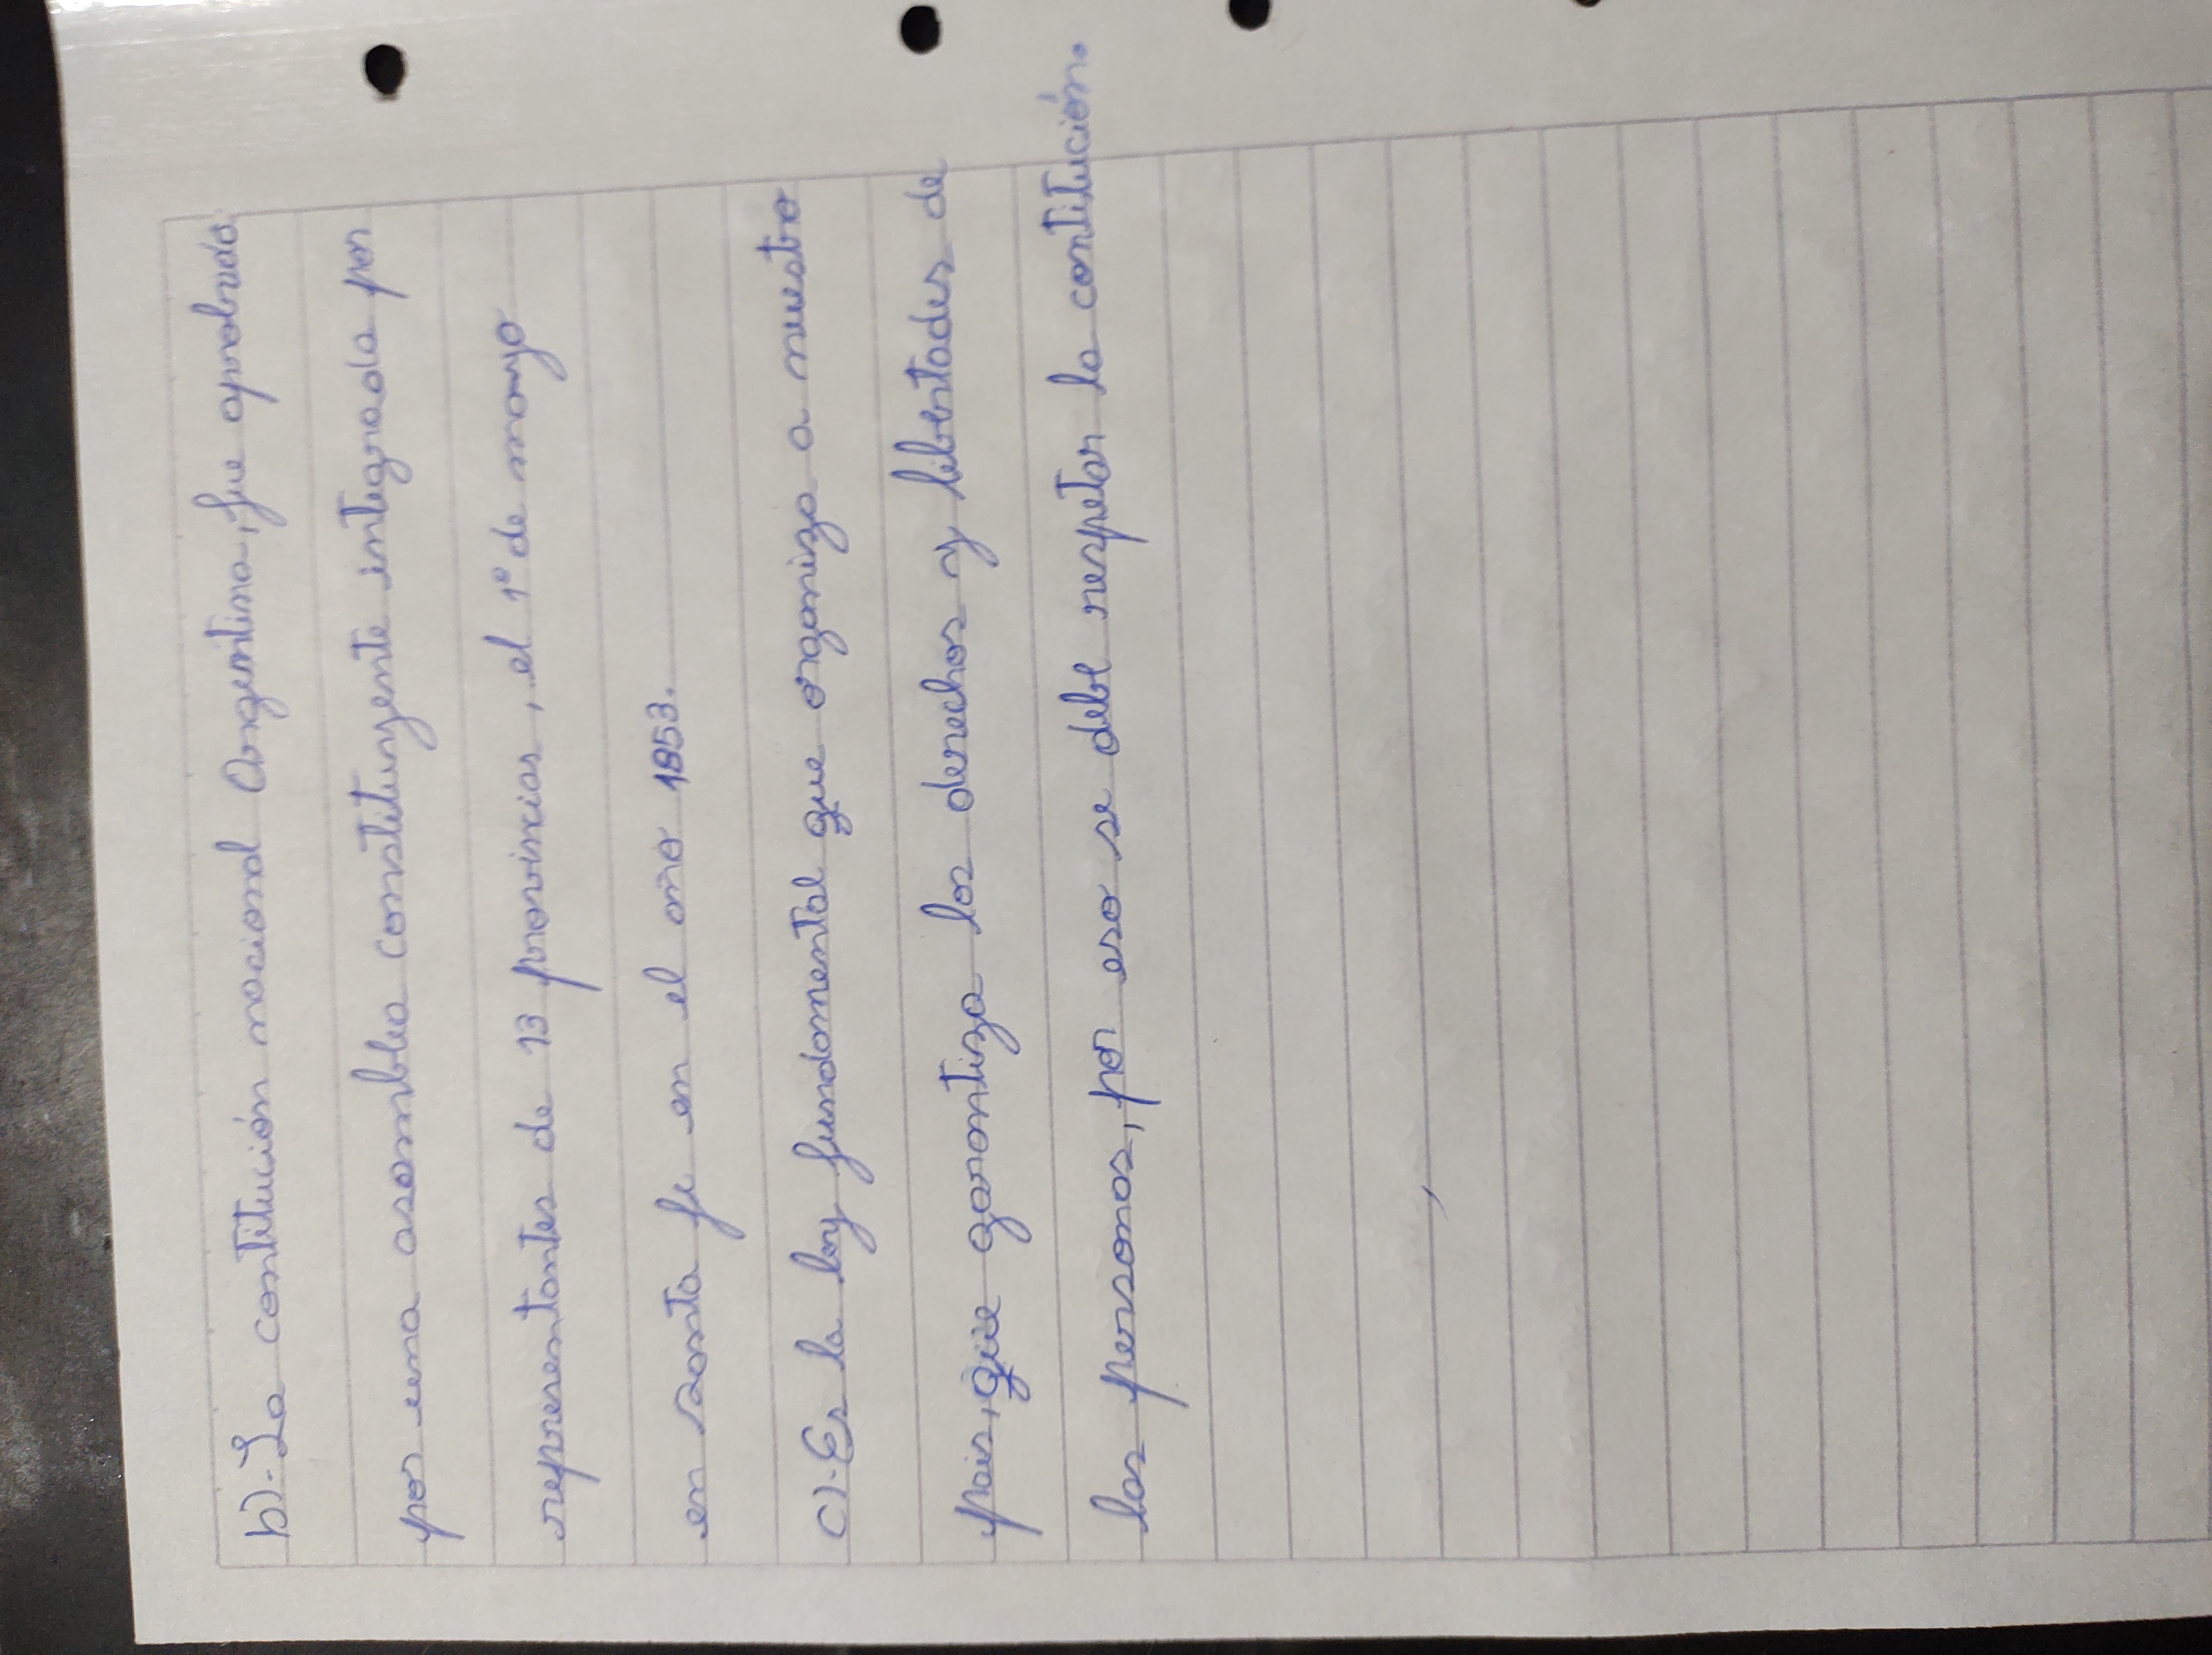 b)-La contitución nacional Argentina, fue aprobada
por una asamblea constituyente integrada por
representantes de 13 provincias, el 1° de mayo
en santa fe en el año 1853.
c)-Es la ley fundamental que organiza a nuestro
pais, que garantiza los derechos y libertades de
las personas, por eso se debe respetar la contitución.